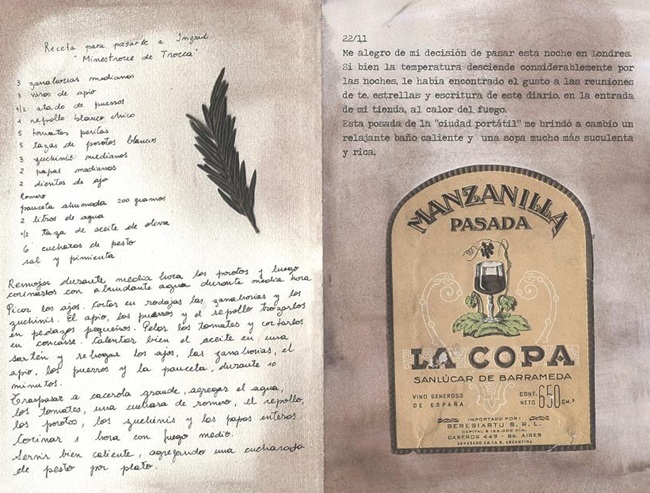 Receta para pasarle a Ingrid
"Minestrone de Trocca"
3 zanahorias medianas
3 varas de apio
1/2 atado de puerros
1 repollo blanco chico
5 tomates peritas
5 tazas de porotos blancos
3 zuchinis medianos
2 papas medianas
2 dientes de ajo
Romero
panceta ahumada 200 gramos
2 litros de agua
1/2 taza de aceite de oliva
6 cucharas de pesto
sal y pimienta
Remojar durante media hora los porotos y luego
cocinarlos con abundante agua durante media hora
Picar los ajos. Cortar en rodajas las zanahorias y los
zuchinis. El apio, los puerros y el repollo trozarlos
en pedazos pequeños. Pelar los tomates y cortarlos
en concassé. Calentar bien el aceite en una
sartén y rehogar los ajos, las zanahorias, el
apio, los puerros y la panceta, durante 10
minutos.
Traspasar a cacerola grande, agregar el agua,
los tomates, una cuchara de romero, el repollo,
los porotos, los zuchinis y las papas enteras.
Cocinar 1 hora con fuego medio.
Servir bien caliente, agregando una cucharada
de pesto por plato.
22/11
Me alegro de mi decisión de pasar esta noche en Londres.
Si bien la temperatura desciende considerablemente por
las noches, le había encontrado el gusto a las reuniones
de te, estrellas y escritura de este diario, en la entrada
de mi tienda, al calor del fuego.
Esta posada de la "ciudad portátil" me brindó a cambio un
relajante baño caliente y una sopa mucho más suculenta
y rica.
MANZANILLA
PASADA
LA COPA
SANLÚCAR DE BARRAMEDA
VINO GENEROSO
DE ESPAÑA
CONT.
NETO 650 CM.³
IMPORTADO POR:
BERESIARTU S. R. L.
CASEROS 449 - BS. AIRES